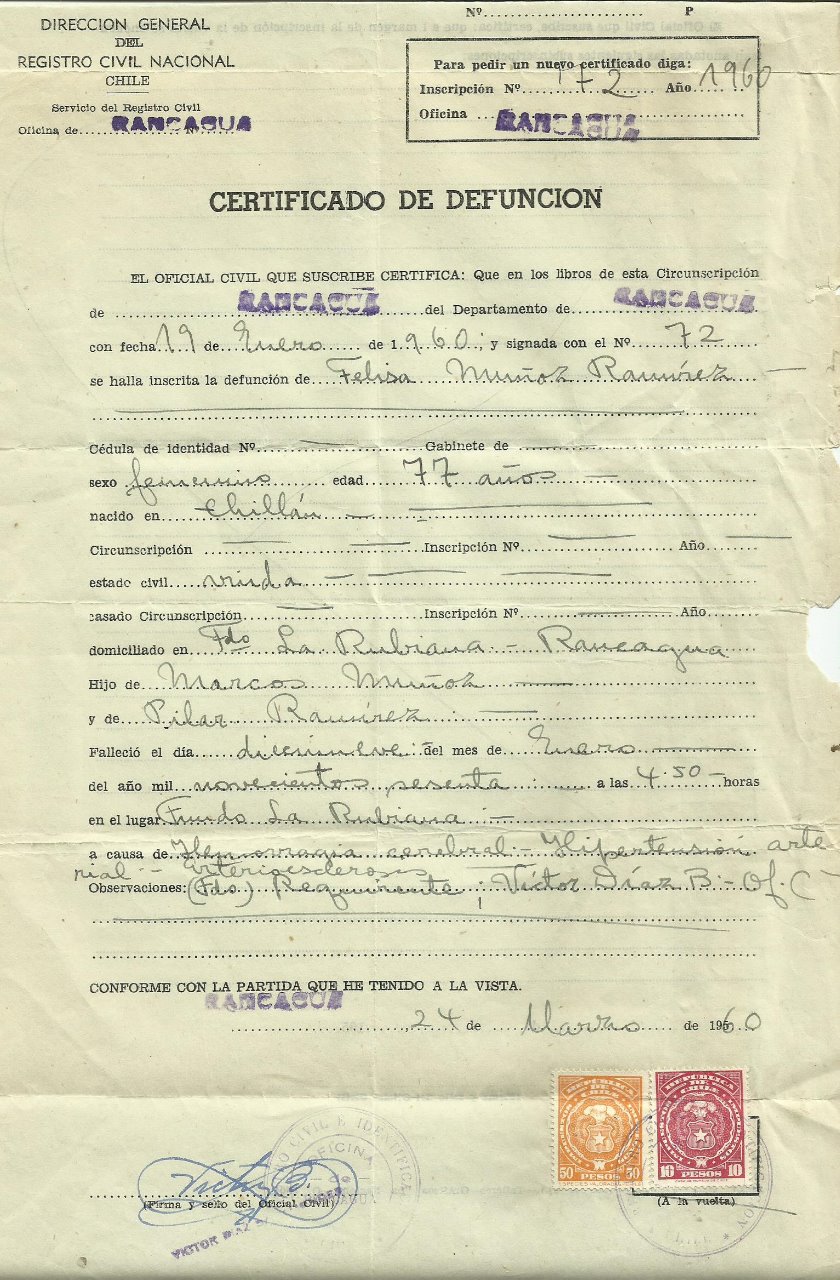 Nº ........ P
DIRECCION GENERAL
DEL
REGISTRO CIVIL NACIONAL
CHILE
Servicio del Registro Civil
Oficina de RANCAGUA
Para pedir un nuevo certificado diga:
Inscripción Nº 72 Año 1960
Oficina RANCAGUA
CERTIFICADO DE DEFUNCION
EL OFICIAL CIVIL QUE SUSCRIBE CERTIFICA: Que en los libros de esta Circunscripción
de RANCAGUA del Departamento de RANCAGUA
con fecha 19 de Enero de 1.960; y signada con el Nº 72
se halla inscrita la defunción de Felisa Muñoz Ramírez —
Cédula de identidad Nº — Gabinete de —
sexo femenino edad 77 años —
nacido en Chillán —
Circunscripción — Inscripción Nº — Año —
estado civil viuda —
casado Circunscripción — Inscripción Nº — Año
domiciliado en Fdo La Rubiana - Rancagua
Hijo de Marcos Muñoz —
y de Pilar Ramírez —
Falleció el día diecinueve del mes de Enero —
del año mil novecientos sesenta a las 4.50 — horas
en el lugar Fundo La Rubiana -
a causa de Hemorragia cerebral - Hipertensión arte
rial - Arterioesclerosis
Observaciones: (Fdo) Requirente; Víctor Díaz B - Of. C
CONFORME CON LA PARTIDA QUE HE TENIDO A LA VISTA.
RANCAGUA
24 de Marzo de 1960
REPUBLICA DE CHILE
50 PESOS 50
REPUBLICA DE CHILE
10 PESOS 10
(A la vuelta)
CIVIL E IDENTIFICA
OFICINA
(Firma y sello del Oficial Civil)
VICTOR DIAZ